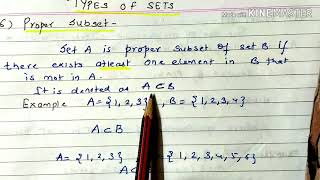 TYPES OF SETS
Made with KINEMASTER
6) Proper Subset -
Set A is proper subset of set B if
there exists atleast one element in B that
is not in A.
It is denoted as A⊂B
Example A = {1, 2, 3} , B = {1, 2, 3, 4}
A⊂B
A = {1, 2, 3} = {1, 2, 3, 4, 5, 6}
A⊂